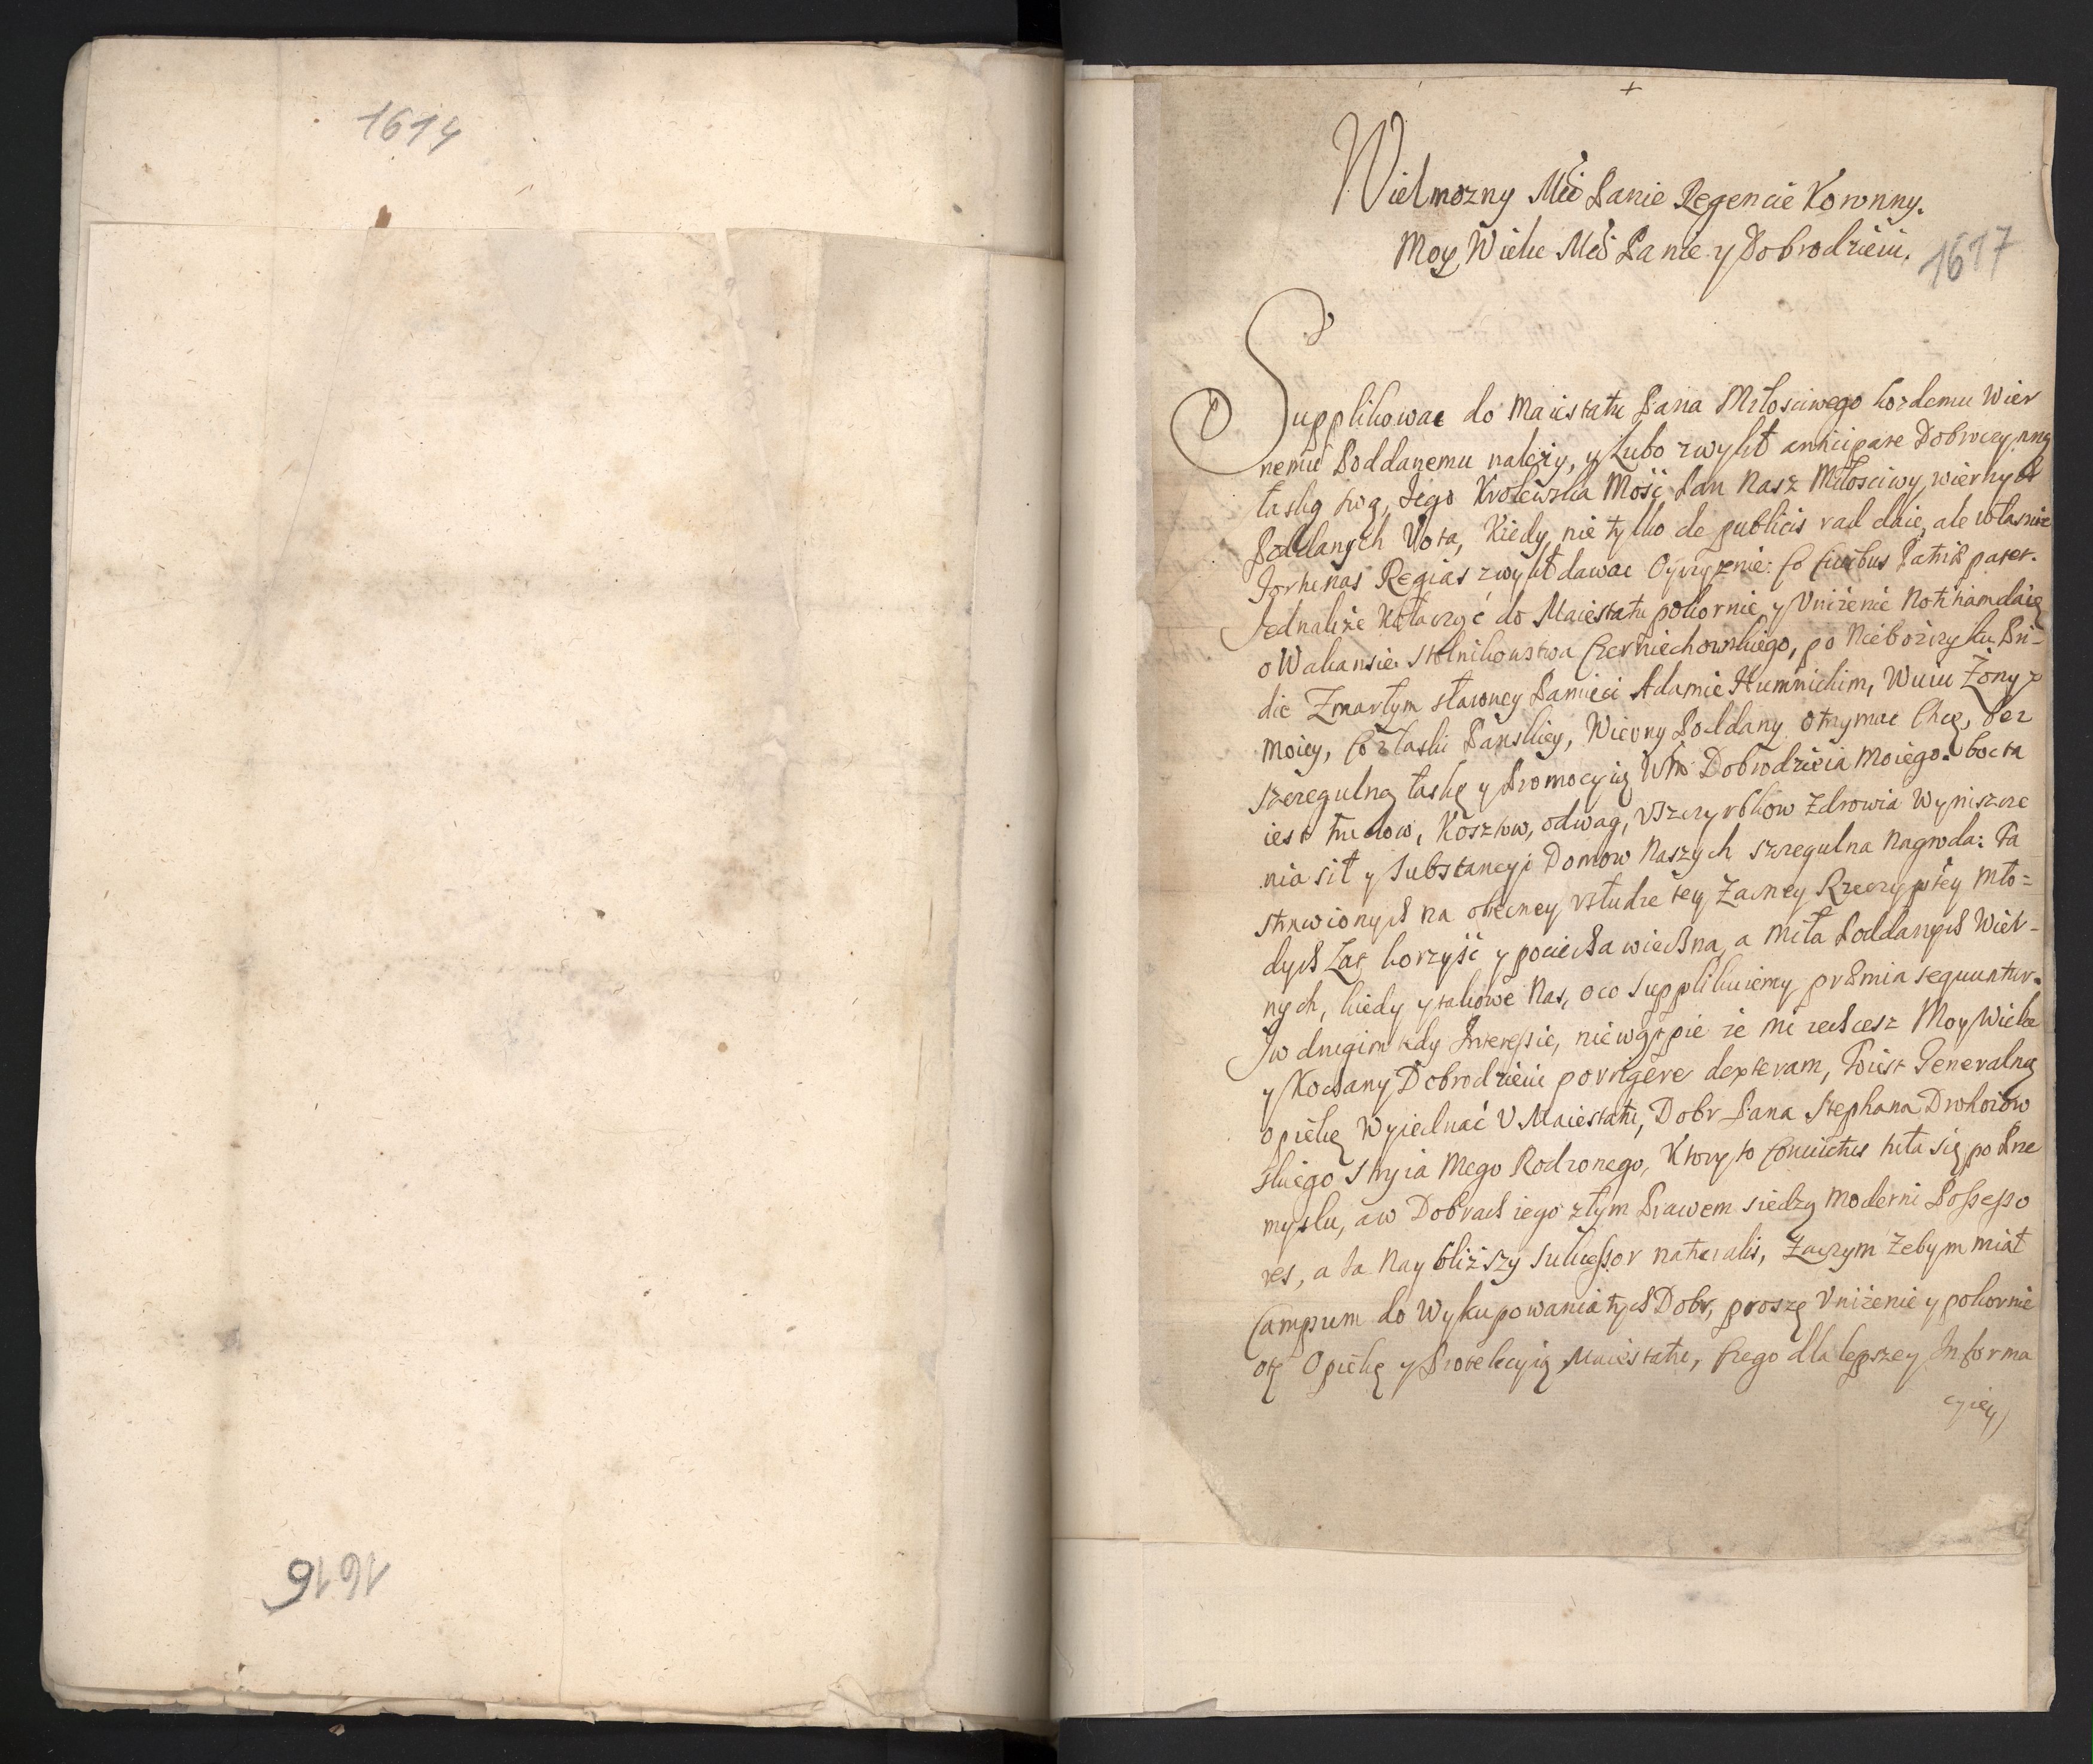 1614
1616
+
Wielmozny Mći Panie Regencie Koronny.
Moy Wielce Mći Panie y Dobrodzieiu.
1617
Supplikowac do Maiestatu Pana Miłosciwego kozdemu Wier
nemu Poddanemu nalezy, y Lubo zwykł anticipare Dobroczynną
łaską swą, Jego Krolewska Mość Pan Nasz Miłosciwy, wiernych
Poddanych Vota, Kiedy, nie tylko de publicis rad daie, ale własnie
fortunas Regias zwykł dawac Oyczyznie: Patriæ pater.
Jednakże Kołatzyć do Maiestatu pokornie y Vniżenie daią
o Wakansie. Stolnikowstwa Czerniechowskiego, po Nieboszczyku
die Zmarłym sławney Pamięci Adamie Humnickim, Wuiu Żony
moiey, Co z łaski Panskiey, Wierny Poddany otrzymac Chcę, bez
szczegulną łaskę y Promocyią Wm Dobrodzieia Moiego. bo ta
iest trudow, Kosztow, odwag, Vszczyrbkow zdrowia Wyniszcze
nia sił y Substancyi Domow Naszych szczegulna Nagroda: Ta
strawionych na obecney Vsłudze tey Zacney Rzeczyptey Mło=
dych Lat korzyść y pociecha wieczna, a Miła Poddanych Wier-
nych, kiedy y takowe Nas, oco Supplikuiemy præmia sequuntur.
Jw drugim tdy Interessie, nie wątpie ze mi zechcesz Moy Wielce
y Kochany Dobrodzieiu porrigere dexteram, Toiest Generalną
Opiekę Wyiednać V Maiestatu, Dobr Pana Stephana Drohoiow
skiego Stryia Mego Rodzonego, Ktory to convictus tuła się po Prze
myslu, a w Dobrach iego złym Prawem siedzą moderni Possesso
res, a Ja Nay bliższy Sukcessor naturalis, Zaczym Zebym miał
Campum do Wykupowania tych Dobr, proszę Vniżenie y pokornie
otę Opiekę y Protekcyią Maiestatu, Czego dla lepszey Informa
cyiey